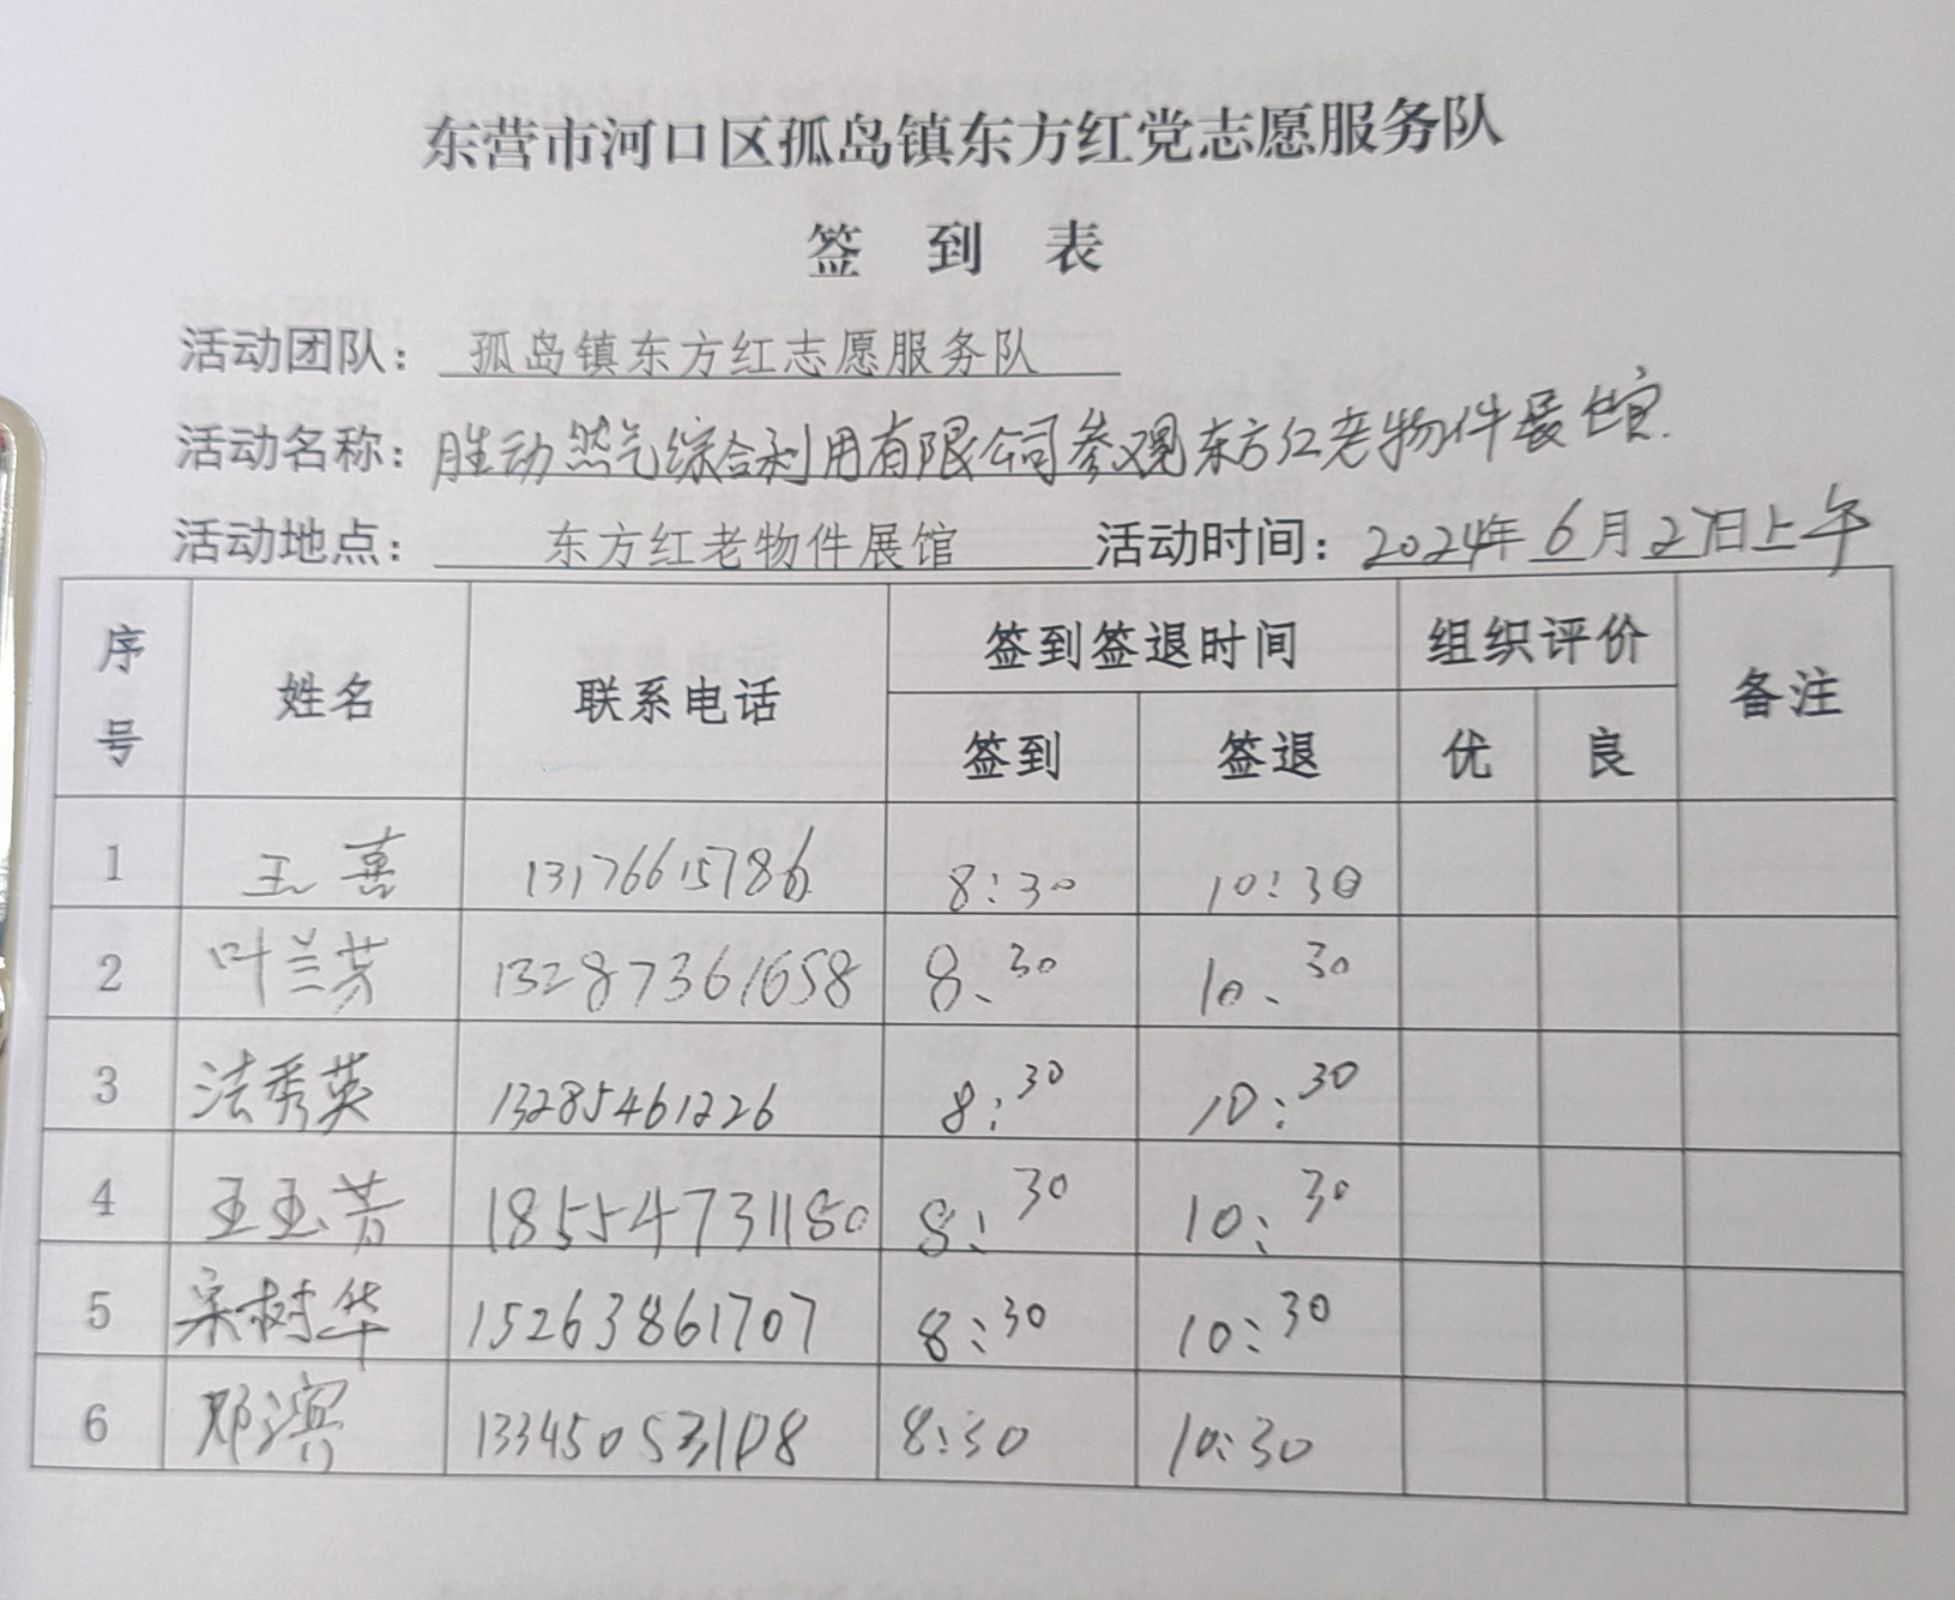 东营市河口区孤岛镇东方红党志愿服务队
签 到 表
活动团队: 孤岛镇东方红志愿服务队
活动名称: 胜动燃气综合利用有限公司参观东方红老物件展馆.
活动地点: 东方红老物件展馆 活动时间: 2024年 6月 27日上午
序号 姓名 联系电话 签到签退时间 组织评价 备注
签到 签退 优 良
1 王喜 13176615786 8:30 10:30
2 叶兰芳 13287361658 8、30 10、30
3 法秀英 13285461226 8:30 10:30
4 王玉芳 18554731180 8:30 10:30
5 宋树华 15263861707 8:30 10:30
6 邓滨 13345053108 8:30 10:30